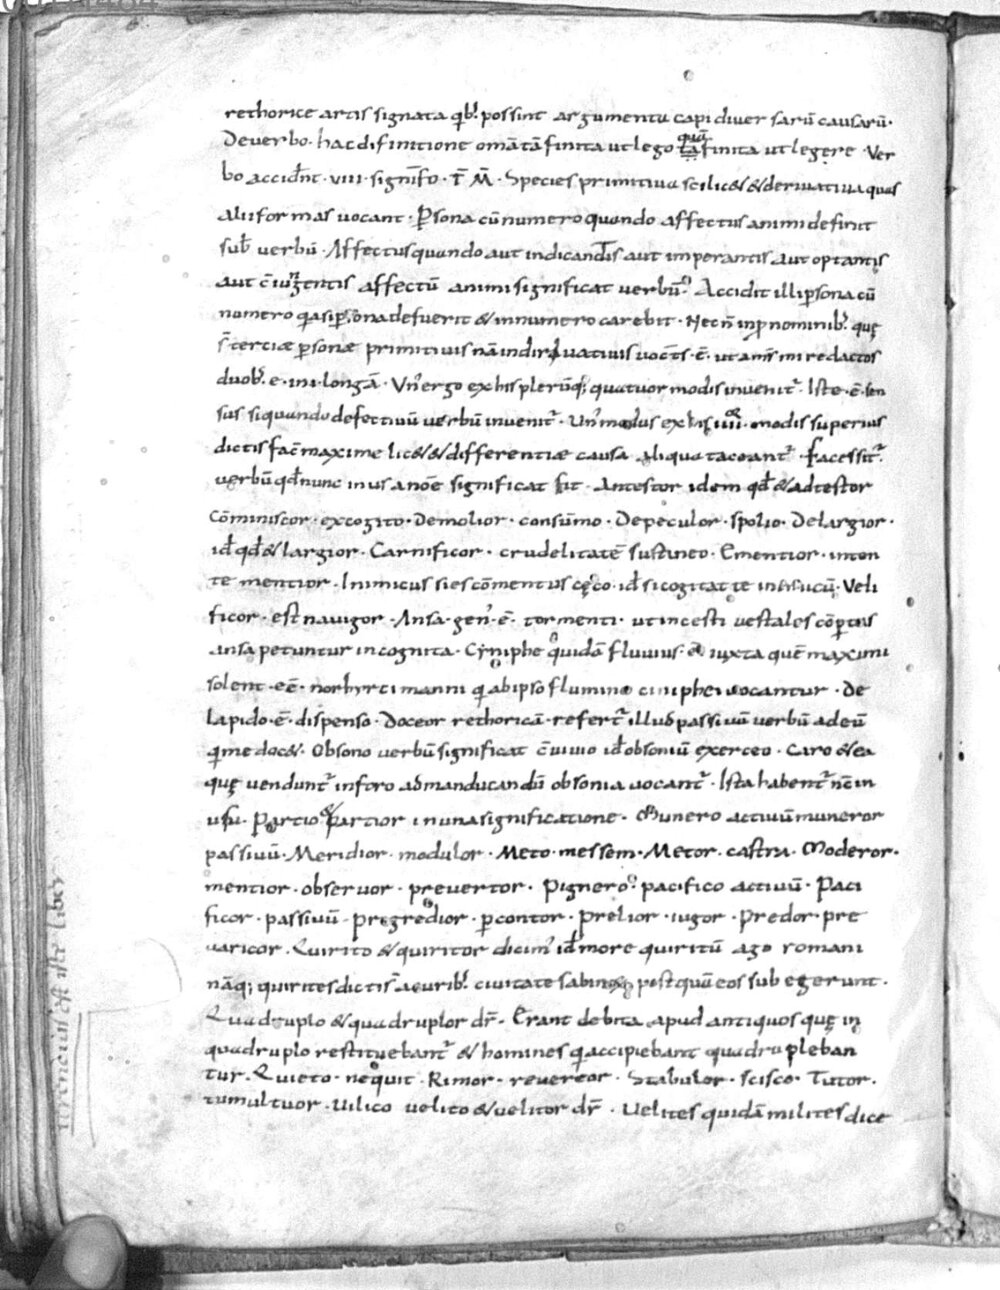 rethorice artis signata qb' possint argumenta capi diver sarū causarū·
De verbo· hac difinitione omā tā finita ut lego quā finita ut legere· Ver
bo accid̄nt· viii· signif̄o· T̄· M̄· Species primitiva scilic& & derivativa quas
alii formas vocant· P̱sona cū numero quando affectus animi definit
sub̄ verbū· Affectus quando aut indicandis aut imperantis aut optantis
aut c̄iungentis affectū animi significat verbū· Accidit illi p̱sona cū
numero q̇a si p̱sona defuerit & in numero carebit· Nec n̄ in p̄nominib' quę
s̄ terciæ p̱sonæ primitivis nā in dirivativis
duob'· e· in i· longā· Un' ergo ex his plerūq; quatuor modis invenit'· Iste· ē· sen
sus si quando defectivū verbū invenit'· Un' modus ex his iiii· modis superius
dictis fac̄ maxime lic& & differentiæ causa aliqua taceant'· Facessit'·
verbū qd̄ nunc in usa noē significat fit· Antestor idem qd̄ & adtestor
Cōminiscor· excogito· Demolior· consūmo· Depeculor· spolio· Delargior·
id̄ qd̄ & largior· Carnificor· crudelitatē sustineo· Ementior· inten
te mentior· Inimicus si es cōmentus cęco· id̄ si cogitat te Veli
ficor· est navigor· Ansa· gen'· ē· tormenti· ut incesti vestales cōp̱tas
ansa petuntur incognita· Cyniphe quidā fluvius· ē iuxta quē maximi
solent· eē· nor hyrci manni q̇ ab ipso flumine ciniphei vocantur· De
lapido· ē· dispenso· Doceor rethoricā· refert' illud passivū verbū ad eū
q̇ me doc&· Obsono verbū significat c̄vivio id̄ obsoniū exerceo· Caro & ea
quę vendunt' in foro ad manducandū obsonia vocant'· Ista habent' nc̄ in
usu· P̱artio & partior in una significatione· Munero activū muneror
passivū· Meridior· modulor· Meto· messem· Metor· castra· Moderor·
mentior· observor· prevertor· Pignero· pacifico activū· Paci
ficor· passivū· pregredior· p̱contor· prelior· iugor· Predor· pre
varicor· Quirito & quiritor dicim' id̄ more quiritū ago romani
nāq; quirites dicti s̄ a curib' civitate sabinorū postquā eos sub egerunt·
Quadruplo & quadruplor dr̄· Erant debita apud antiquos quę in
quadruplo restituebant' & homines q̇ accipiebant quadrupleban
tur· Quieto· nequit· Rimor· revereor· Stabulor· scisco· Tutor·
tumultuor· Uilico velito & velitor dr̄· Velites quidā milites dice
Terencius est iste liber